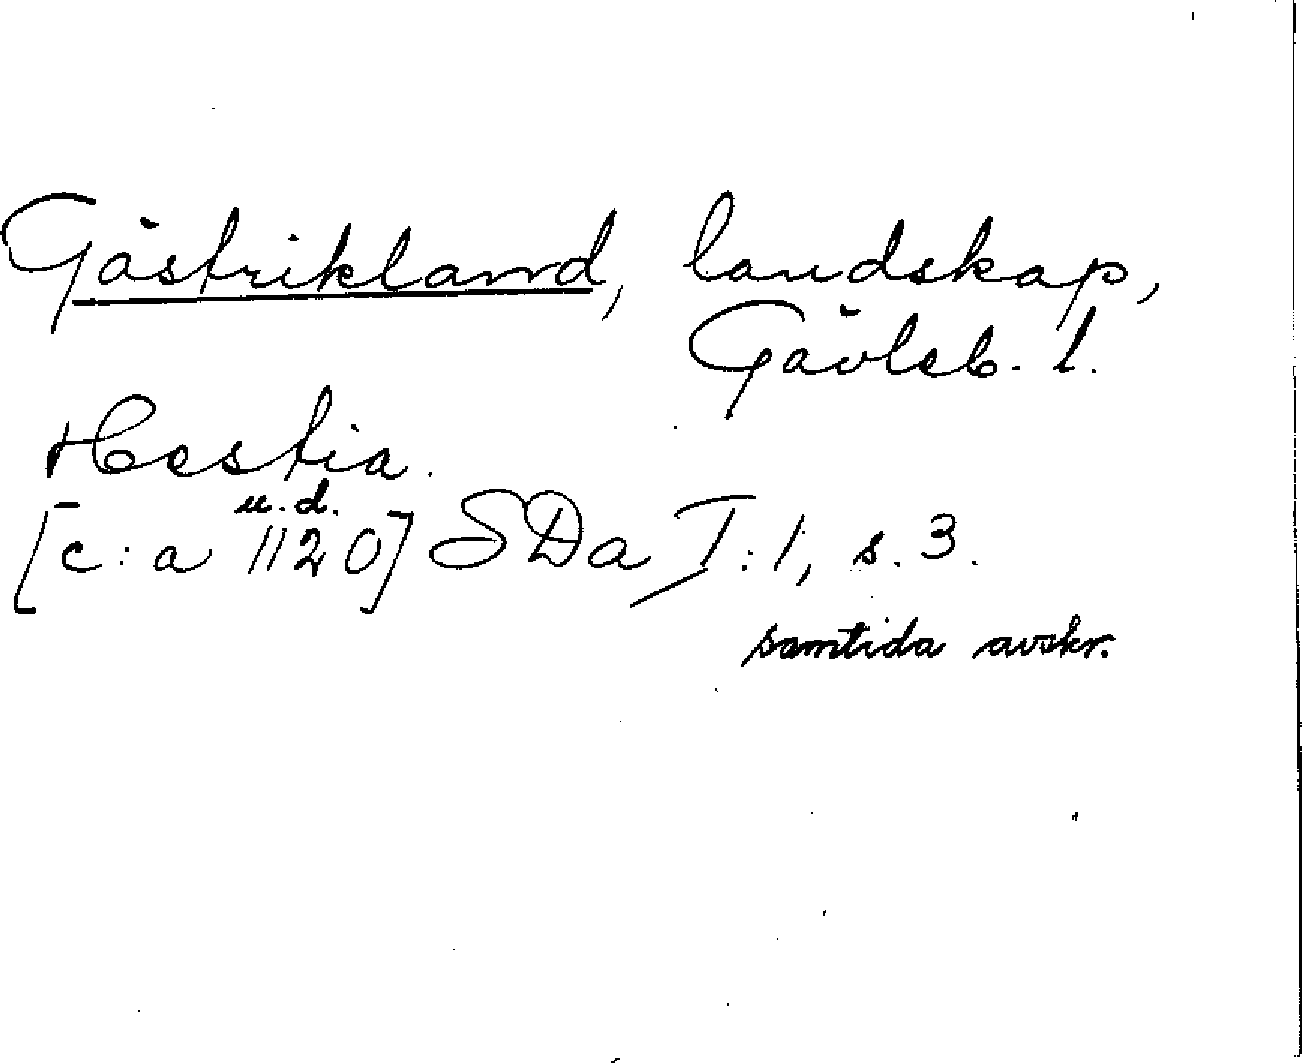 Gästrikland, landskap,
Gävleb. l.
Hestia.
u. d.
[c:a 1120] SDa I:1, s. 3.
samtida avskr.